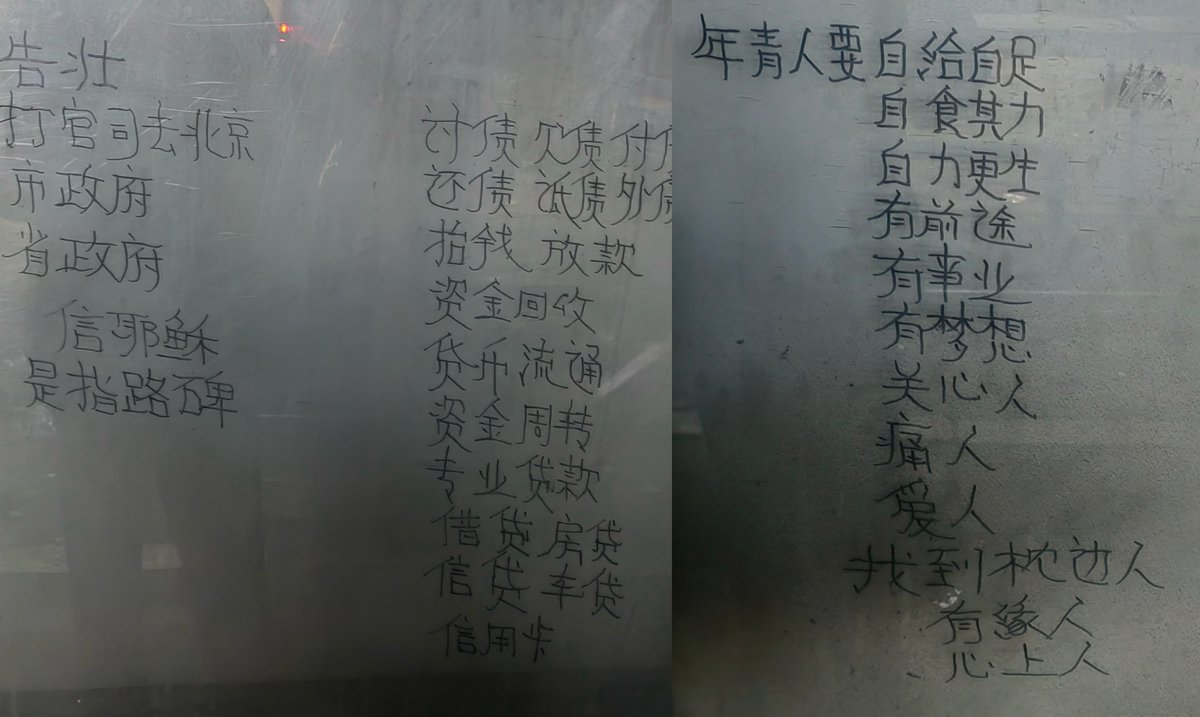 告壮
打官司去北京
市政府
省政府
信耶稣
是指路碑
讨债 欠债 付
还债 抵债 外债
抬钱 放款
资金回收
贷币流通
资金周转
专业贷款
借贷 房贷
信贷 车贷
信用卡
年青人要自给自足
自食其力
自力更生
有前途
有事业
有梦想
关心人
痛人
爱人
找到枕边人
有缘人
心上人